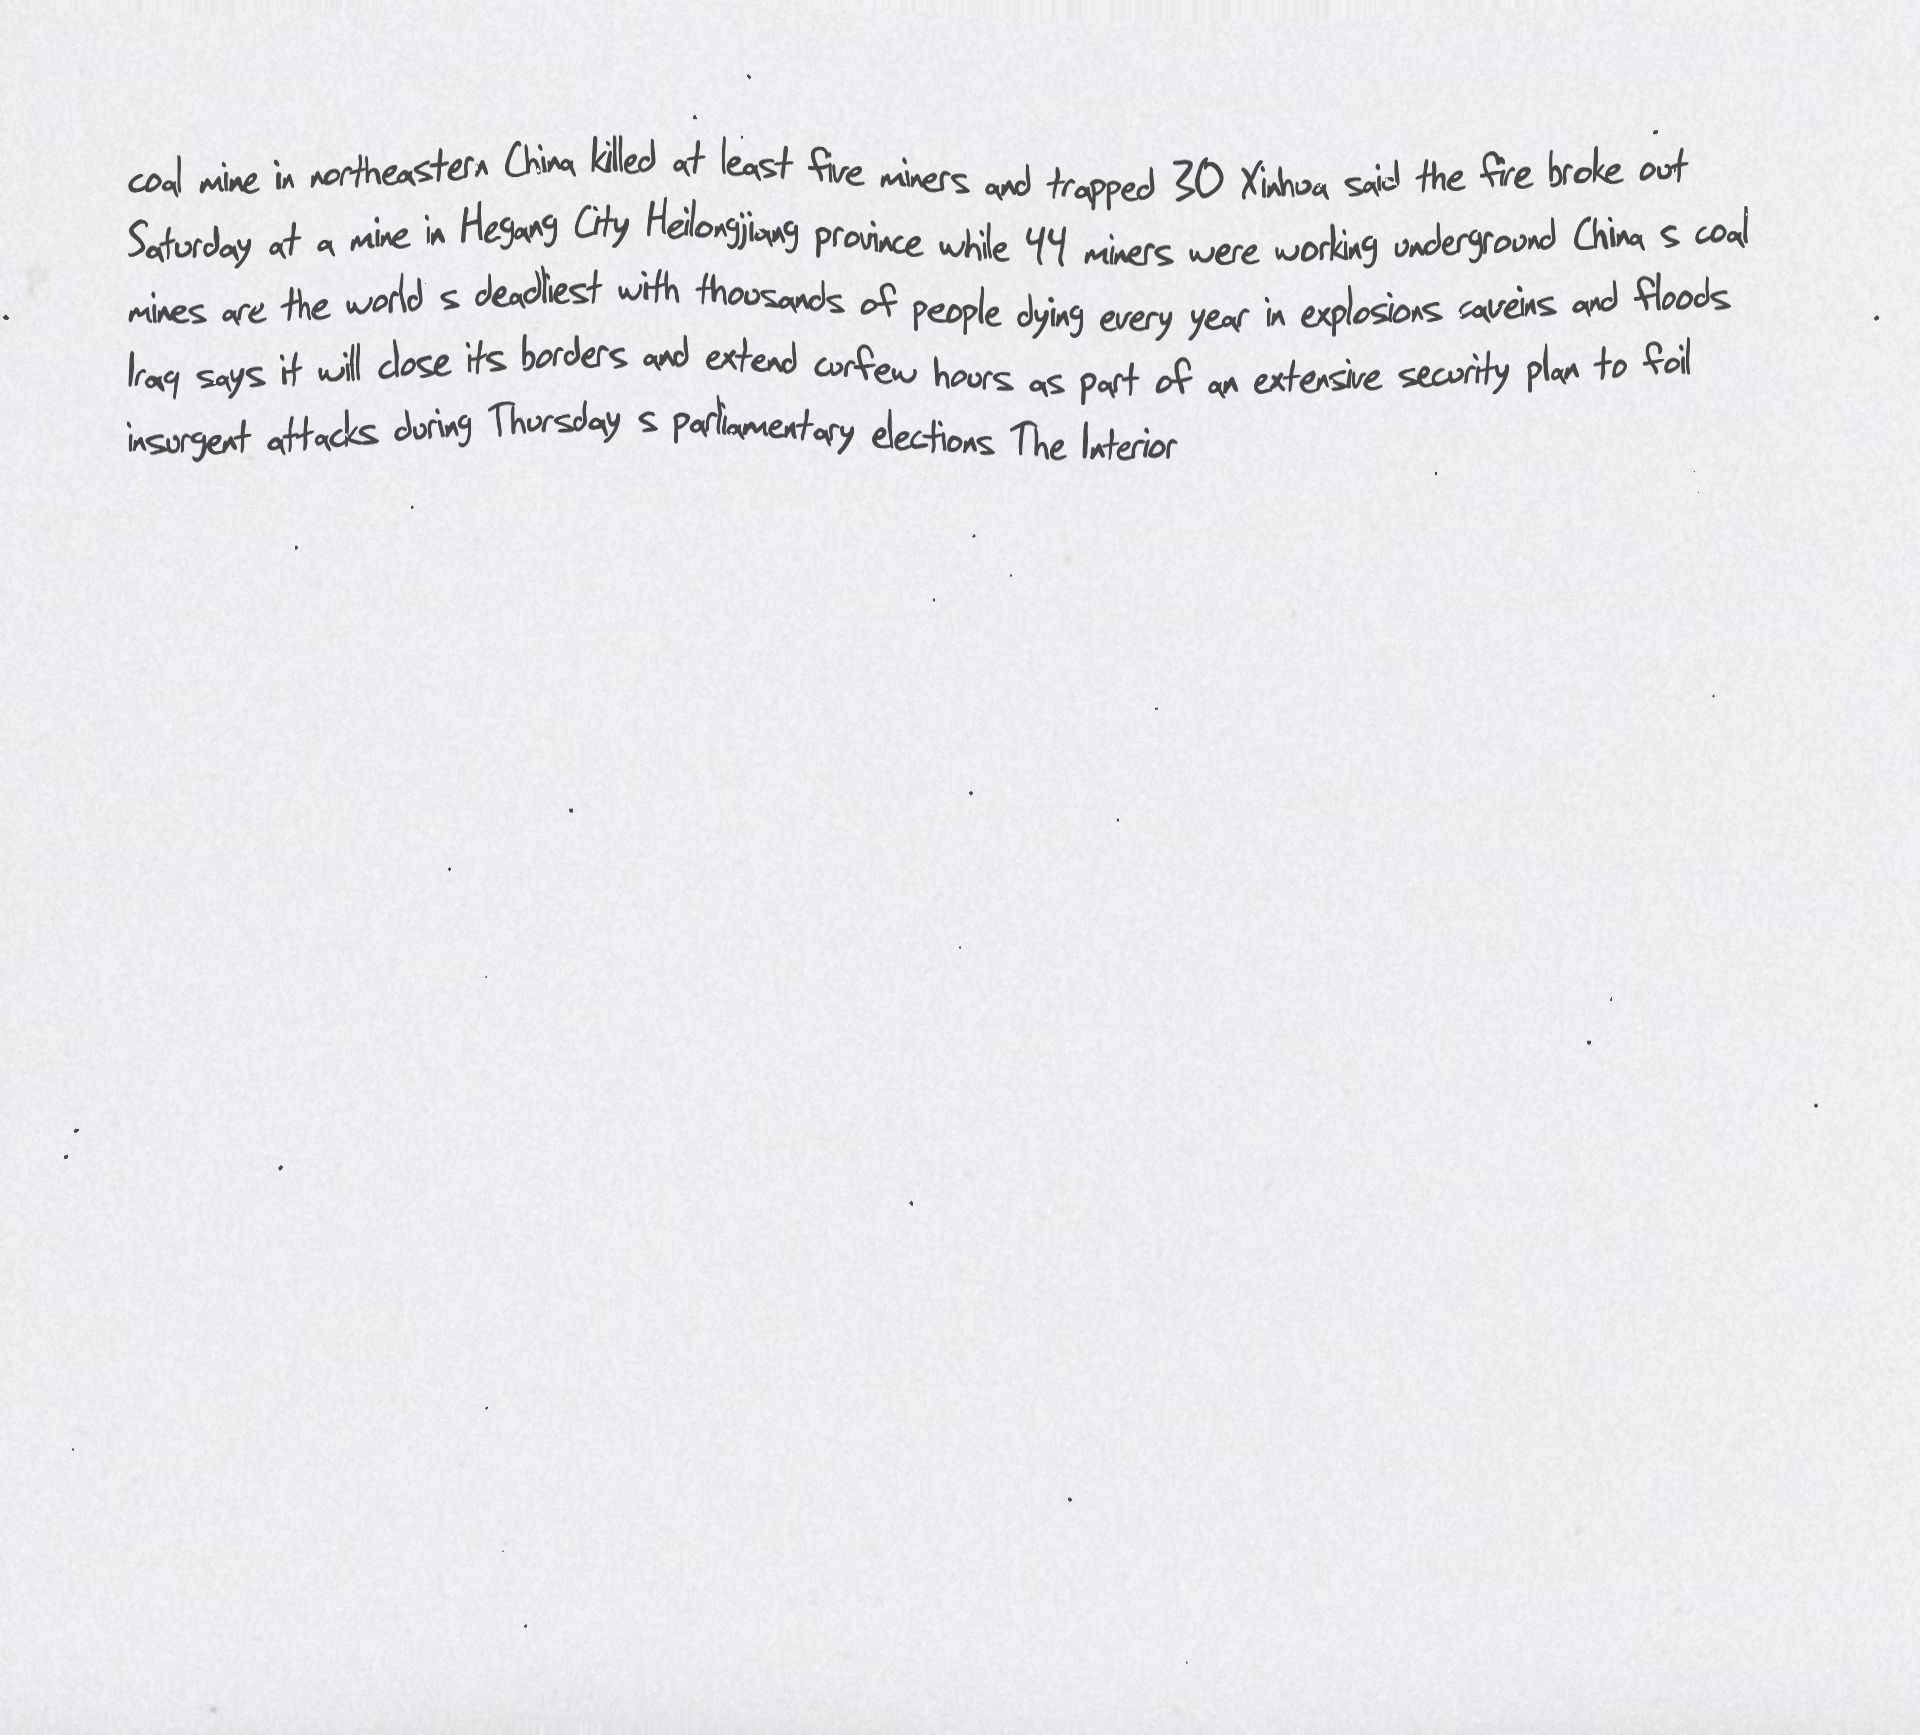 coal mine in northeastern China killed at least five miners and trapped 30 Xinhua said the fire broke out
Saturday at a mine in Hegang City Heilongjiang province while 44 miners were working underground China s coal
mines are the world s deadliest with thousands of people dying every year in explosions caveins and floods
Iraq says it will close its borders and extend curfew hours as part of an extensive security plan to foil
insurgent attacks during Thursday s parliamentary elections The Interior